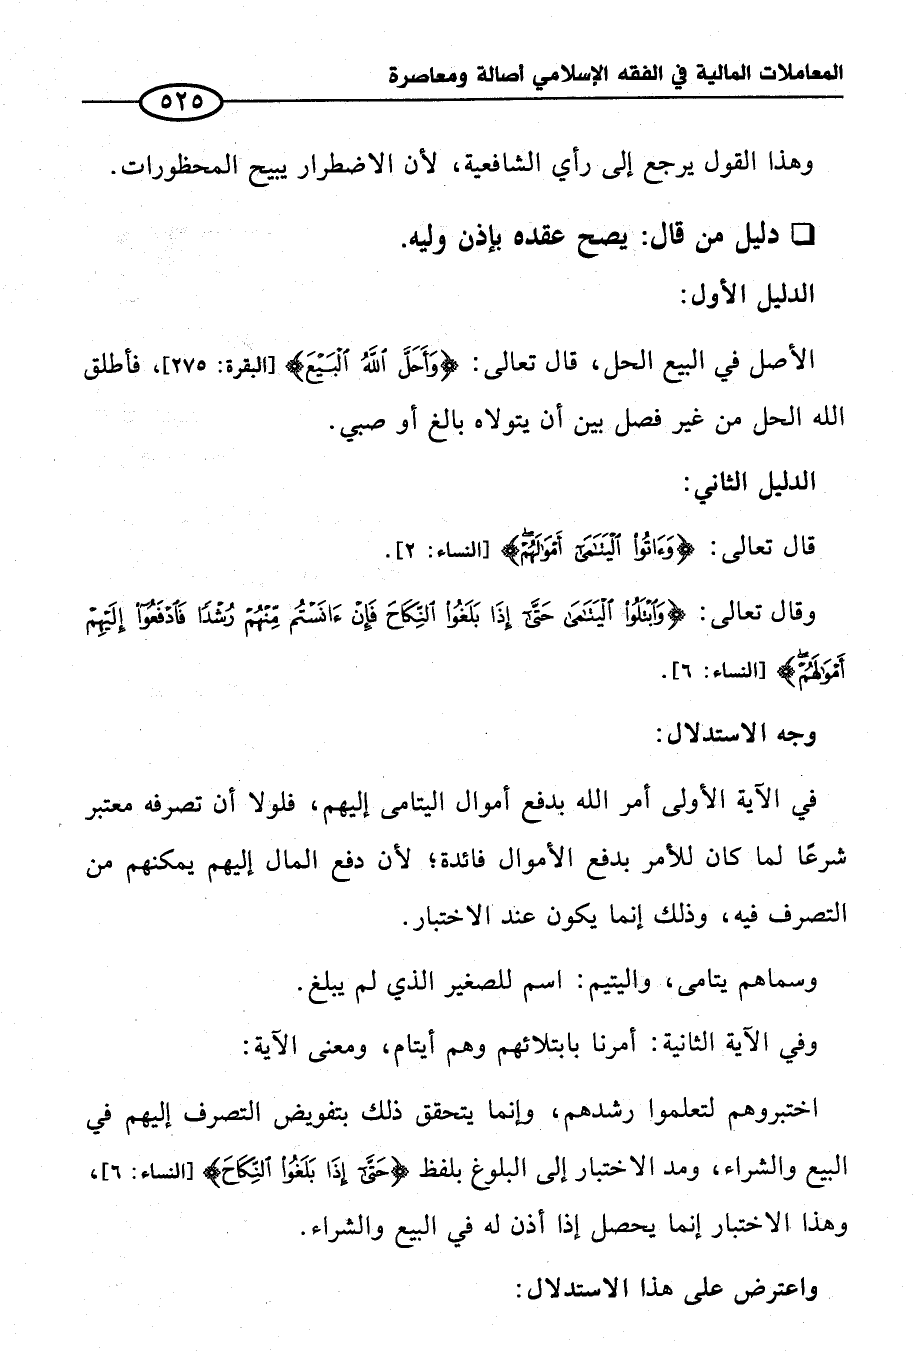 المعاملات المالية في الفقه الإسلامي أصالة ومعاصرة
٥٢٥
وهذا القول يرجع إلى رأي الشافعية، لأن الاضطرار يبيح المحظورات.
❏ دليل من قال: يصح عقده بإذن وليه.
الدليل الأول:
الأصل في البيع الحل، قال تعالى: ﴿وَأَحَلَّ ٱللَّهُ ٱلْبَيْعَ﴾ [البقرة: ٢٧٥]، فأطلق
الله الحل من غير فصل بين أن يتولاه بالغ أو صبي.
الدليل الثاني:
قال تعالى: ﴿وَءَاتُوا۟ ٱلْيَتَـٰمَىٰٓ أَمْوَٰلَهُمْ ۖ﴾ [النساء: ٢].
وقال تعالى: ﴿وَٱبْتَلُوا۟ ٱلْيَتَـٰمَىٰ حَتَّىٰٓ إِذَا بَلَغُوا۟ ٱلنِّكَاحَ فَإِنْ ءَانَسْتُم مِّنْهُمْ رُشْدًا فَٱدْفَعُوٓا۟ إِلَيْهِمْ
أَمْوَٰلَهُمْ ۖ﴾ [النساء: ٦].
وجه الاستدلال:
في الآية الأولى أمر الله بدفع أموال اليتامى إليهم، فلولا أن تصرفه معتبر
شرعًا لما كان للأمر بدفع الأموال فائدة؛ لأن دفع المال إليهم يمكنهم من
التصرف فيه، وذلك إنما يكون عند الاختبار.
وسماهم يتامى، واليتيم: اسم للصغير الذي لم يبلغ.
وفي الآية الثانية: أمرنا بابتلائهم وهم أيتام، ومعنى الآية:
اختبروهم لتعلموا رشدهم، وإنما يتحقق ذلك بتفويض التصرف إليهم في
البيع والشراء، ومد الاختبار إلى البلوغ بلفظ ﴿حَتَّىٰٓ إِذَا بَلَغُوا۟ ٱلنِّكَاحَ﴾ [النساء: ٦]،
وهذا الاختبار إنما يحصل إذا أذن له في البيع والشراء.
واعترض على هذا الاستدلال: